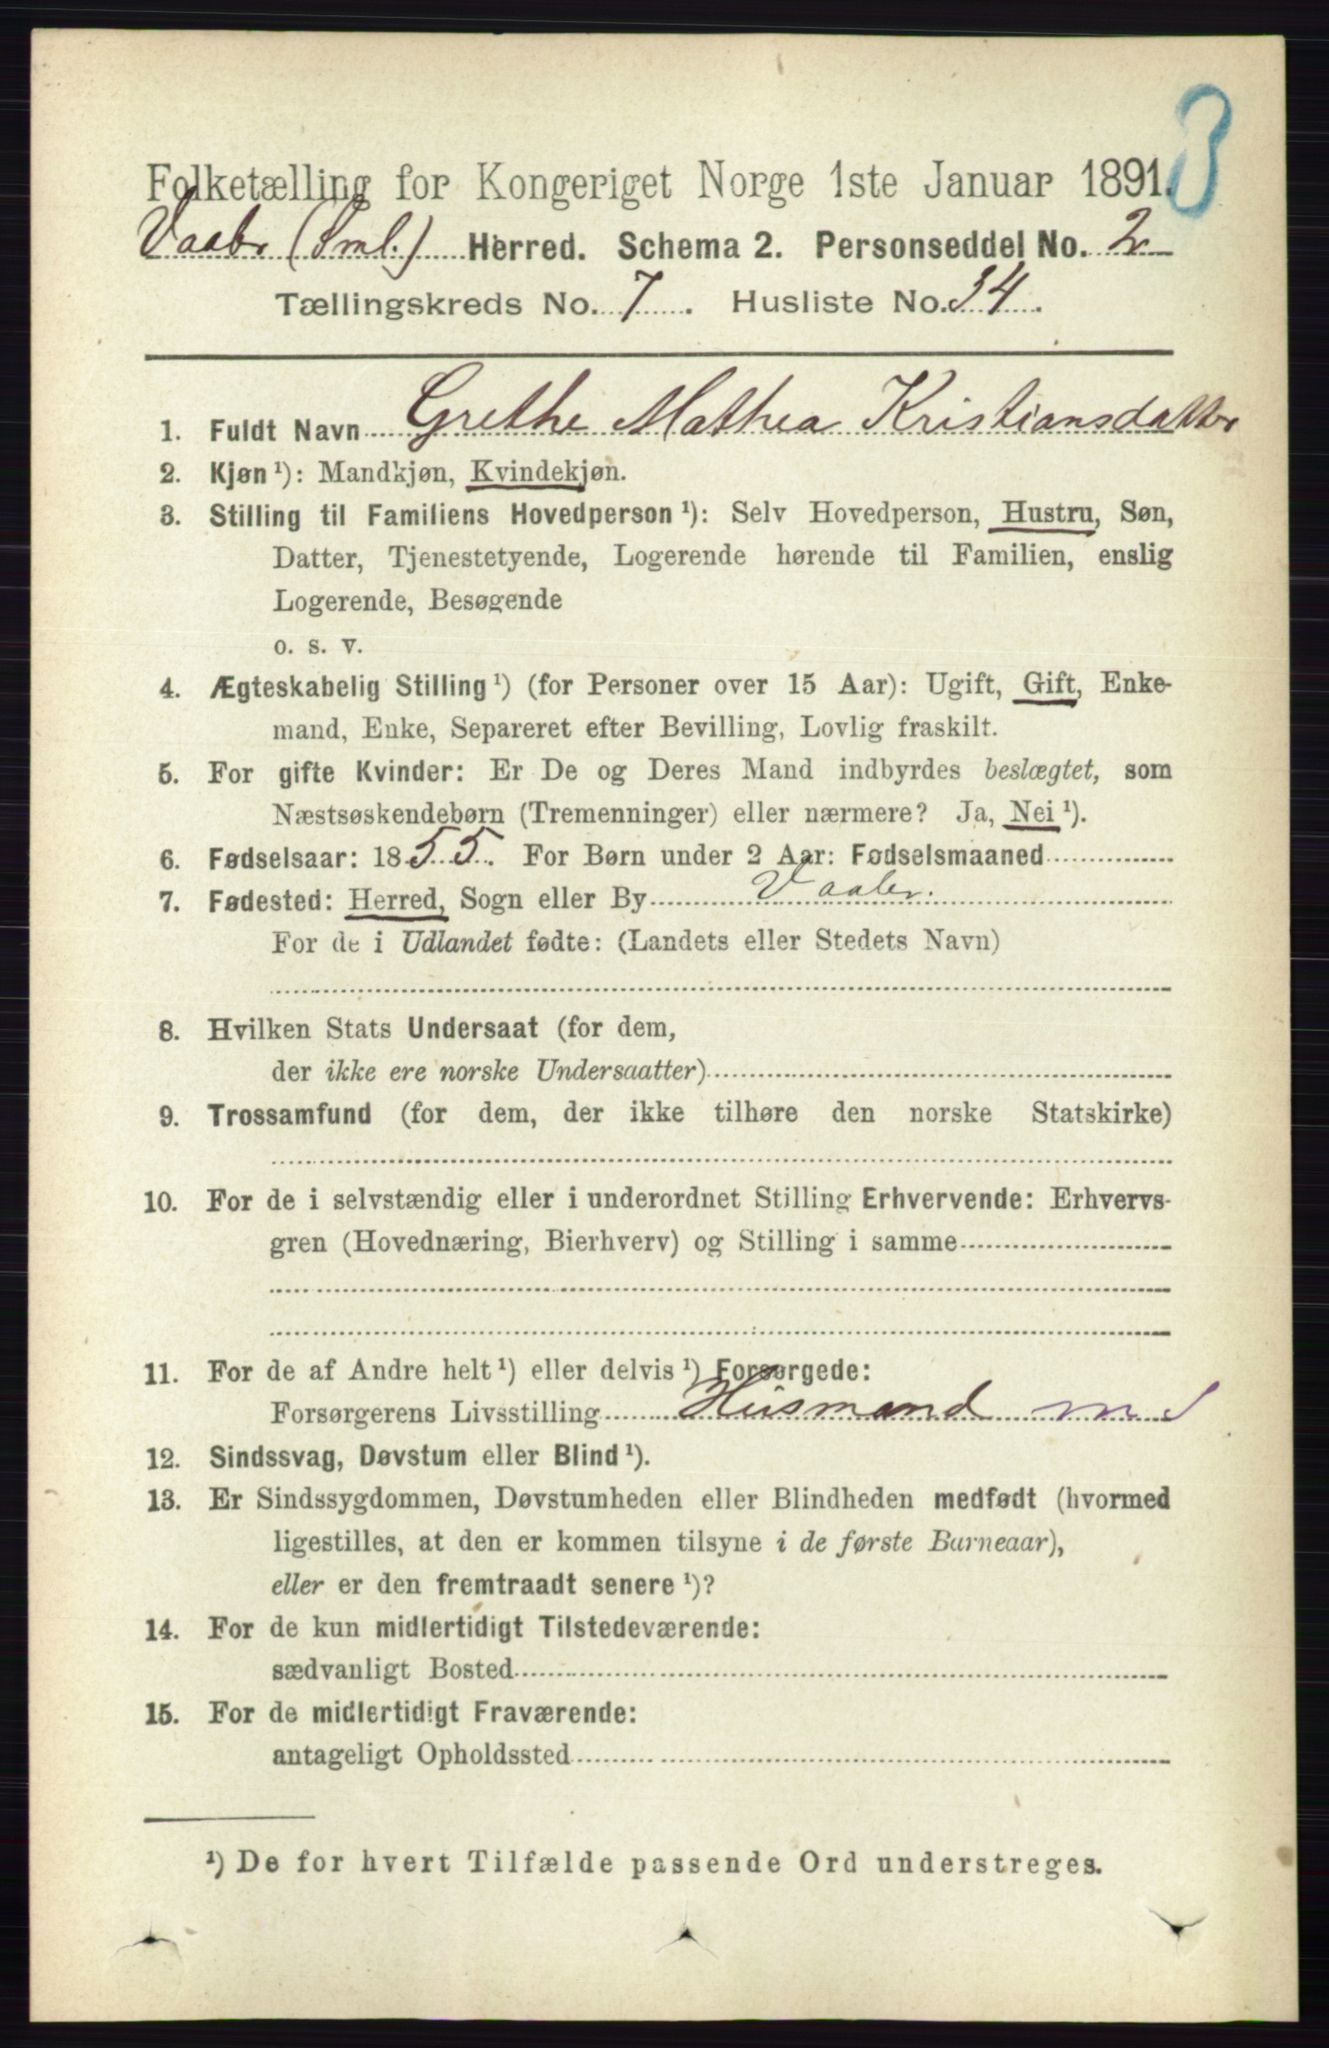 3
Folketælling for Kongeriget Norge 1ste Januar 1891.
Vaaler (Sml.) Herred. Schema 2. Personseddel No. 2
Tællingskreds No. 7. Husliste No. 34.
1. Fuldt Navn Grethe Mathea Kristiansdatter
2. Kjøn ¹): Mandkjøn, Kvindekjøn.
3. Stilling til Familiens Hovedperson ¹): Selv Hovedperson, Hustru, Søn,
Datter, Tjenestetyende, Logerende hørende til Familien, enslig
Logerende, Besøgende
o. s. v.
4. Ægteskabelig Stilling ¹) (for Personer over 15 Aar): Ugift, Gift, Enke-
mand, Enke, Separeret efter Bevilling, Lovlig fraskilt.
5. For gifte Kvinder: Er De og Deres Mand indbyrdes beslægtet, som
Næstsøskendebørn (Tremenninger) eller nærmere? Ja, Nei ¹).
6. Fødselsaar: 1855. For Børn under 2 Aar: Fødselsmaaned
7. Fødested: Herred, Sogn eller By Vaaler.
For de i Udlandet fødte: (Landets eller Stedets Navn)
8. Hvilken Stats Undersaat (for dem,
der ikke ere norske Undersaatter)
9. Trossamfund (for dem, der ikke tilhøre den norske Statskirke)
10. For de i selvstændig eller i underordnet Stilling Erhvervende: Erhvervs-
gren (Hovednæring, Bierhverv) og Stilling i samme
11. For de af Andre helt ¹) eller delvis ¹) Forsørgede:
Forsørgerens Livsstilling Husmand m J
12. Sindssvag, Døvstum eller Blind ¹).
13. Er Sindssygdommen, Døvstumheden eller Blindheden medfødt (hvormed
ligestilles, at den er kommen tilsyne i de første Barneaar),
eller er den fremtraadt senere ¹)?
14. For de kun midlertidigt Tilstedeværende:
sædvanligt Bosted
15. For de midlertidigt Fraværende:
antageligt Opholdssted
¹) De for hvert Tilfælde passende Ord understreges.